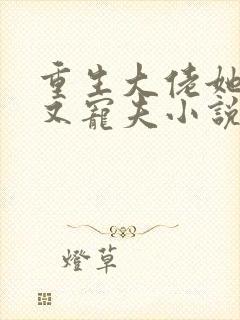 重生大佬她
又寵夫小說
燈草